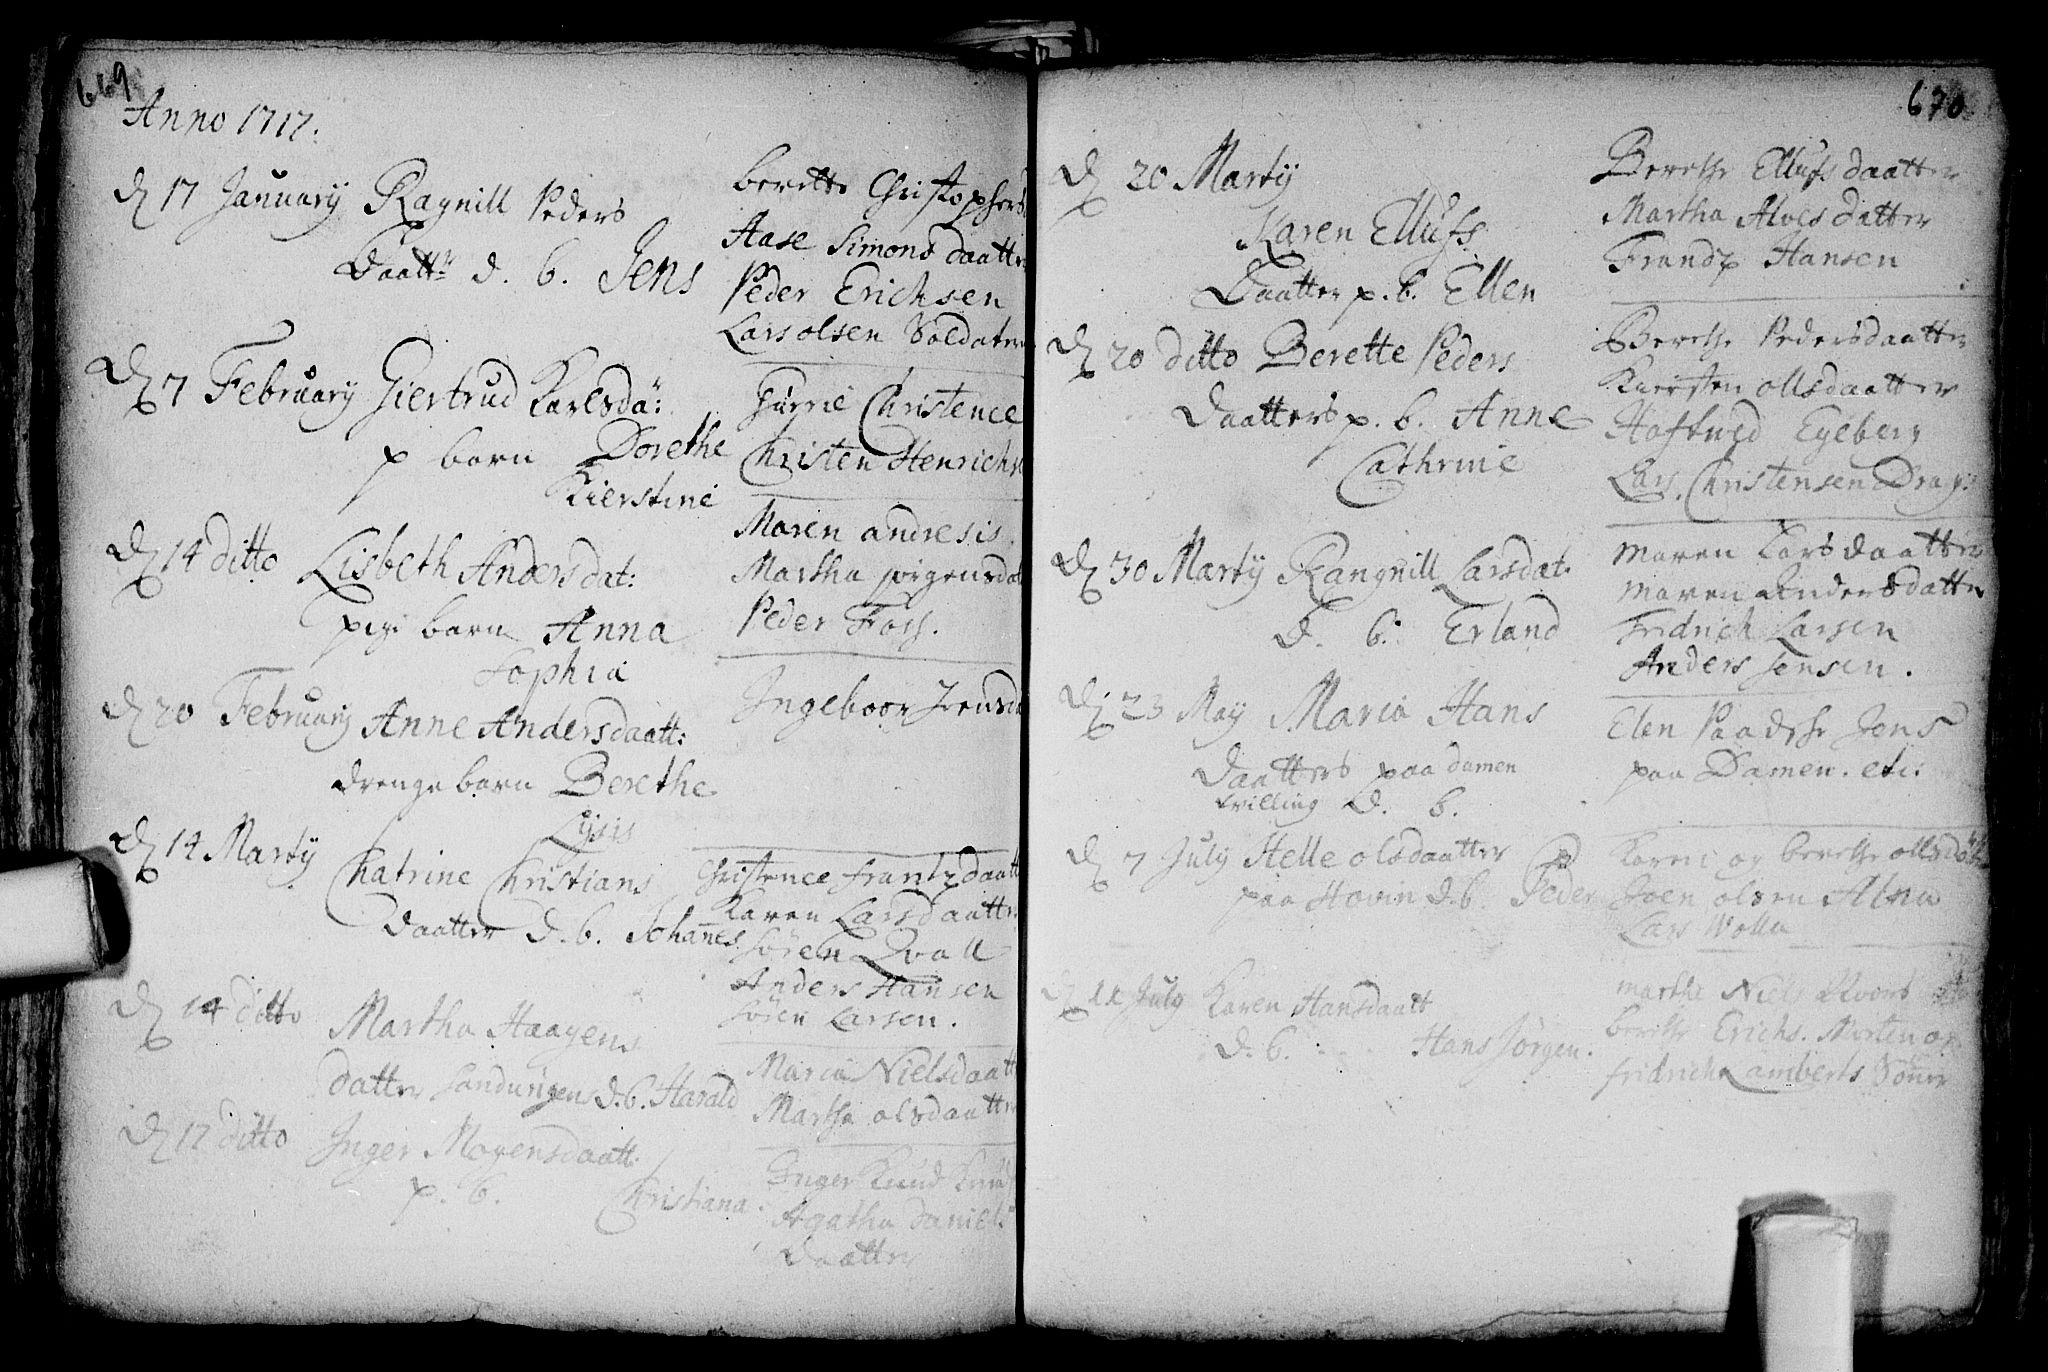 669
Anno 1717.
D 17 January Ragnill Peders
Daattr d. b. Jens
berette Christophers
Aase Simons daatter
Peder Erichsen
Lars olsen Soldater
D 7 February Giertrud Karlsda:
p barn Dorethe
Kierstine
Christence
Christen Henrichs
D 14 ditto Lisbeth Anders dat:
pige barn Anna
Sophia
Maren andresis
Martha jørgensdat
Peder Foss.
D 20 February Anne Andersdaatt:
drenge barn Berethe
Lysis
Ingeboor Jensda
D 14 Martÿ
Chatrine Christians
daatter d. b. Johannes
Christence frantzdaatt
Karen Larsdaatter
Søren Qvall
Anders Hansen
Søren Larsen.
D 14 ditto
Martha Haagens
datter d. b. Harald
Maria Nielsdaatt
Marthe olsdaatter
D 17 ditto Inger Mogensdaatt.
p. b. Christiana.
Inger Knud
Agatha Daniels
Daatter
670
D 20 Martÿ
Karen Ellufs
Daatter p. b. Ellen
Berethe Ellufs daatter
Martha Alves datter
Frandz Hansen
D 20 ditto Berette Peders
Daatters p. b. Anne
Cathrine
Berethe Pedersdaatter
Kiersten ollsdaatter
Egeberg
Lars Christensen Drag:
D 30 Martÿ Rangnill Larsdat.
D. b. Erland
Maren Larsdaatter
Maren Andersdatter
Fridrich Larsen
Anders Jensen.
D 23 May Maria Hans
Daatters paa damen
tvilling D. b.
Elen Jens
paa Damen. etc:
D 7 July Helle olsdaatter
paa Hovin d. b. Peder
Karen og berethe
Joen olsen Alna
Lars Wolla
D 11 July Karen Hansdaatt
d. b. Hans Jørgen.
marthe Niels
berethe Erichs. Morten og
fridrich Lamberts Sønner